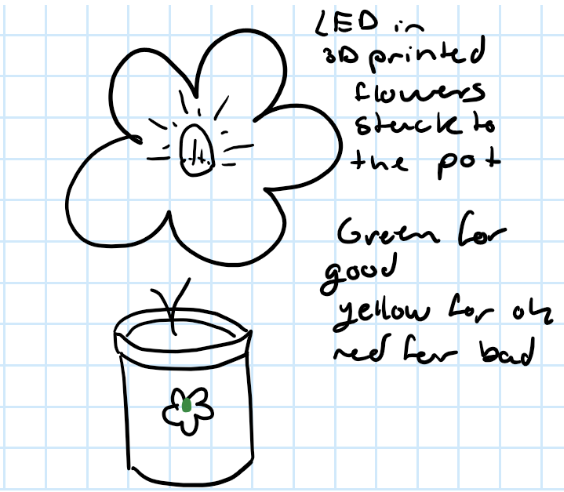 LED in
3D printed
flowers
stuck to
the pot
Green for
good
yellow for ok
red for bad